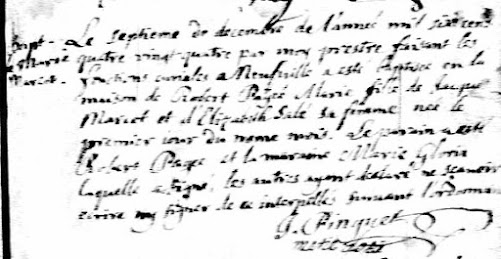 Bapt. Le septieme de decembre de l'année mil six cens
Marie quatre vingt quatre par moy prestre faisant les
Marcot fonctions curiales a Neufville a esté baptisée en la
maison de Robert Pagé Marie fille de Jacque
Marcot et d'Elizabeth Salé sa femme née le
premier iour du mesme mois. Le parain a esté
Robert Pagé et la maraine Marie Gloria
laquelle a signé, les autres ayant declaré ne scavoir
ecrire ny signer de ce interpellés suivant l'ordonnan
G. Pinguet